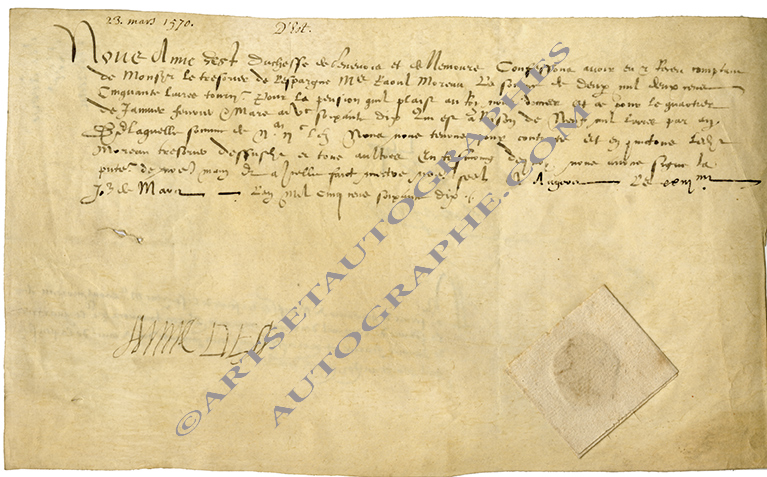 23. mars 1570. D'Est.
Nous Anne dest Duchesse de Genevois et de Nemours Confessons avoir eu et Receu comptant
de Monsr le tresorier de lespargne Me Raoul Moreau La somme de deux mil deux cens
Cinquante livres tourn. Pour la pension quil plaist au Roy nous donner et ce pour le quartier
de Janvier fevrier et Mars mil vc soixante dix Qui est a Raison de Neuf mil livres par an
De Laquelle somme de Nous nous tenons pour contente et en quictons Ledit
Moreau tresorier dessusdit et tous aultres En tesmoing de nous avons signe la
de main et a icelle faict mettre seel A Angers Le xxiii me
Jor de Mars Lan Mil cinq cens soixante dix
ANNE DEST
©ARTSETAUTOGRAPHES
AUTOGRAPHE.COM